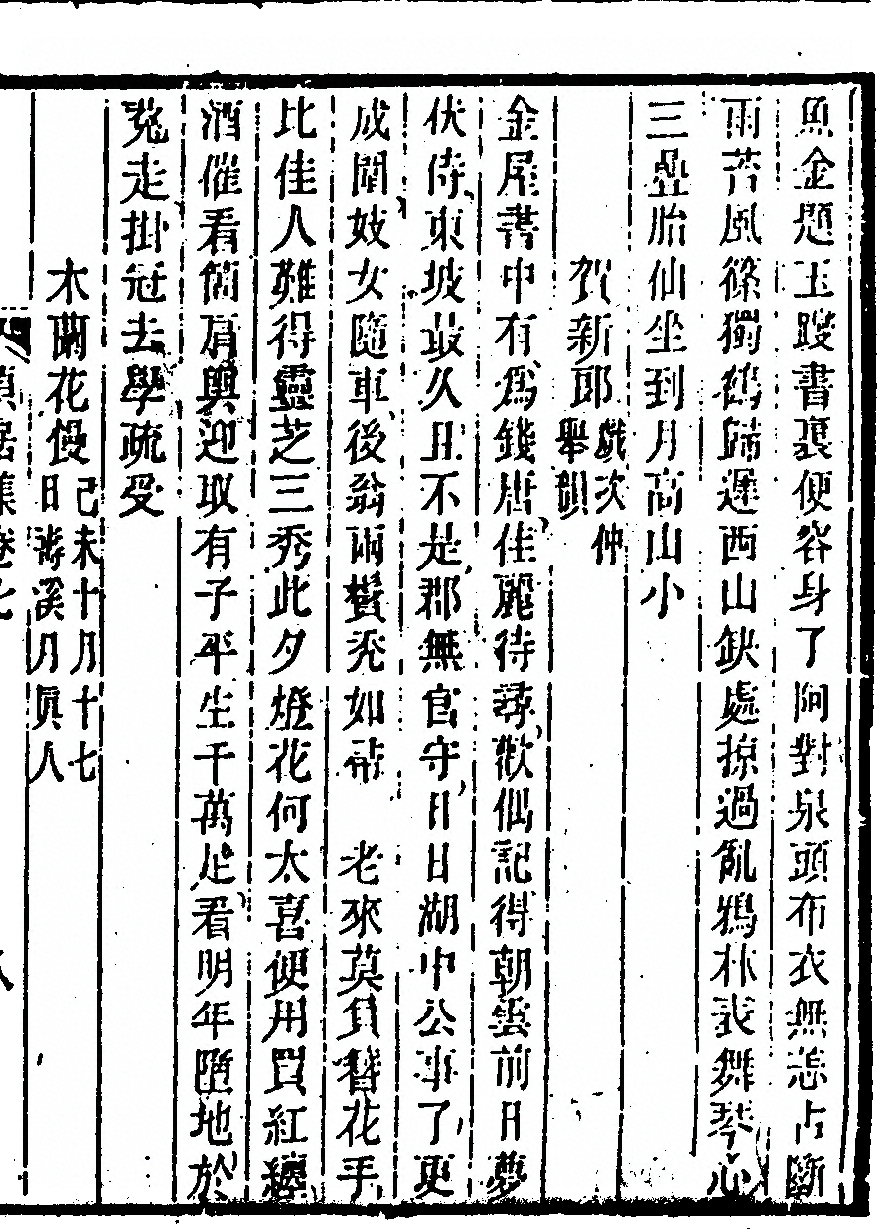 魚金題玉躞書裏便容身了阿對泉頭布衣無恙占斷
雨苔風篠獨鶴歸遲西山缺處掠過亂鴉林表舞琴心
三疊胎仙坐到月高山小
賀新郎 戲次仲舉韻
金屋書中有爲錢唐佳麗待尋歡偶記得朝雲前日夢
伏侍東坡最久且不是郡無官守日日湖中公事了更
成閙妓女隨車後翁兩鬢禿如帚　老來莫負簪花手
比佳人難得靈芝三秀此夕燈花何太喜便用買紅纏
酒催看箇肩輿迎取有子平生千萬足看明年墮地於
菟走掛冠去學疏受
木蘭花慢 己未十月十七日游溪月眞人
貞居集卷七